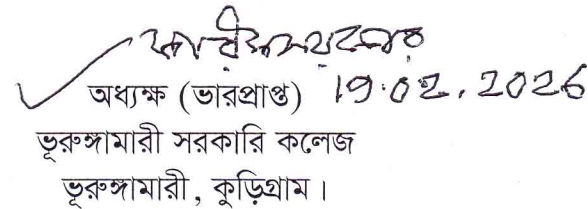 অধ্যক্ষ (ভারপ্রাপ্ত) 19.02.2026
ভূরুঙ্গামারী সরকারি কলেজ
ভূরুঙ্গামারী, কুড়িগ্রাম।